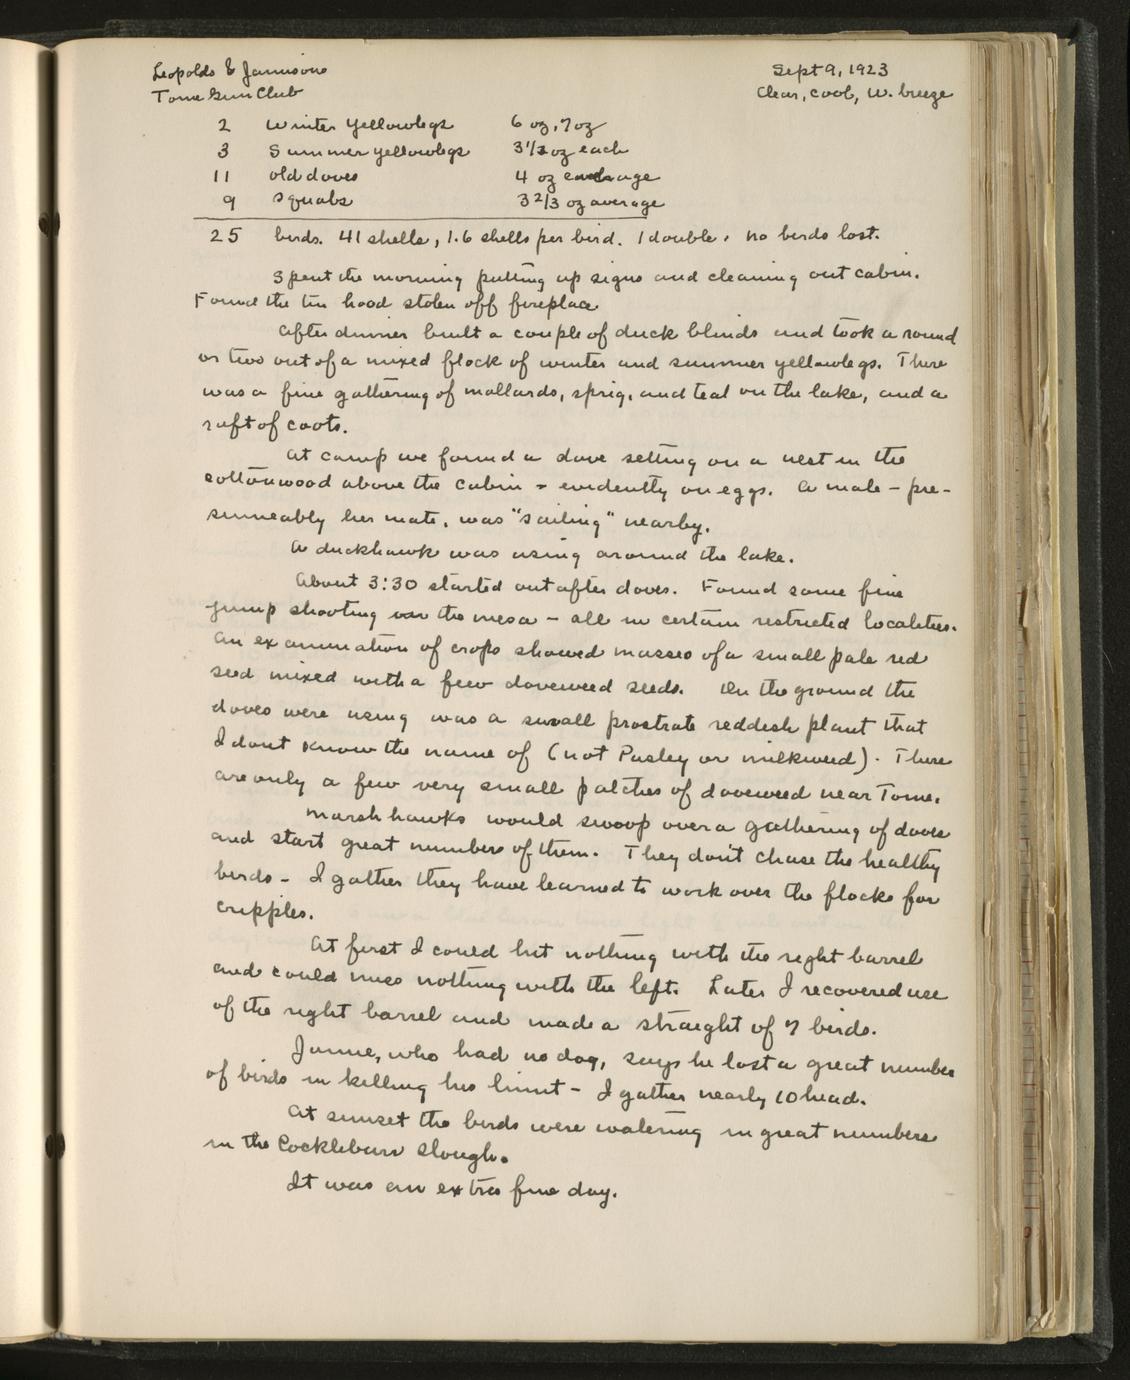 Leopolds & Jamisons
Tome Gun Club
Sept 9, 1923
Clear, cool, W. breeze
2 Winter Yellowlegs 6 oz, 7 oz
3 Summer yellowlegs 3 1/2 oz each
11 old doves 4 oz average
9 squabs 3 2/3 oz average
25 birds. 41 shells, 1.6 shells per bird. 1 double. no birds lost.
Spent the morning putting up signs and cleaning out cabin.
Found the tin hood stolen off fireplace
After dinner built a couple of duck blinds and took a round
or two out of a mixed flock of winter and summer yellowlegs. There
was a fine gathering of mallards, sprig, and teal on the lake, and a
raft of coots.
At camp we found a dove setting on a nest in the
cottonwood above the cabin - evidently on eggs. A male - pre-
sumeably her mate, was "sailing" nearby.
A duckhawk was using around the lake.
About 3:30 started out after doves. Found some fine
jump shooting on the mesa - all in certain restricted localities.
An examination of crops showed masses of a small pale red
seed mixed with a few doveweed seeds. On the ground the
doves were using was a small prostrate reddish plant that
I dont know the name of (not Pusley or milkweed). There
are only a few very small patches of doveweed near Tome.
Marsh hawks would swoop over a gathering of doves
and start great numbers of them. They don't chase the healthy
birds - I gather they have learned to work over the flocks for
cripples.
At first I could hit nothing with the right barrel
and could miss nothing with the left. Later I recovered use
of the right barrel and made a straight of 7 birds.
Jamie, who had no dog, says he lost a great number
of birds in killing his limit - I gather nearly 10 head.
At sunset the birds were watering in great numbers
in the Cocklebur Slough.
It was an extra fine day.